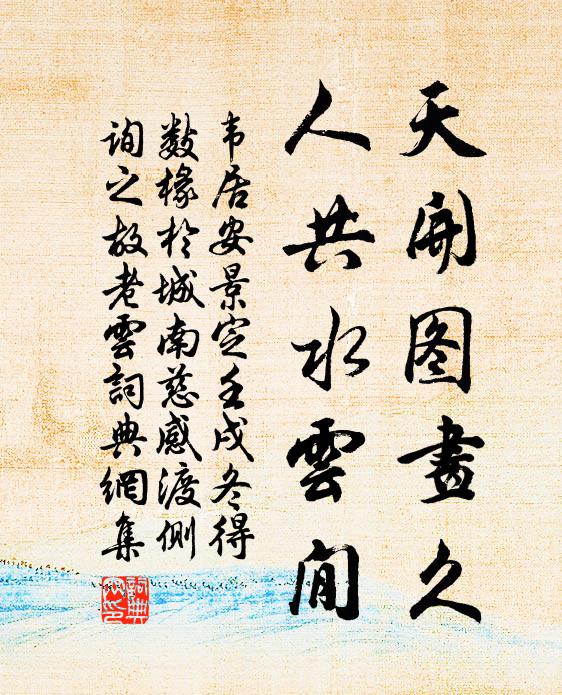 天开图畫久
人共水雲间
韦居安景定壬戌冬得
数椽於城南慈感渡侧
询之故老雲詞典網集